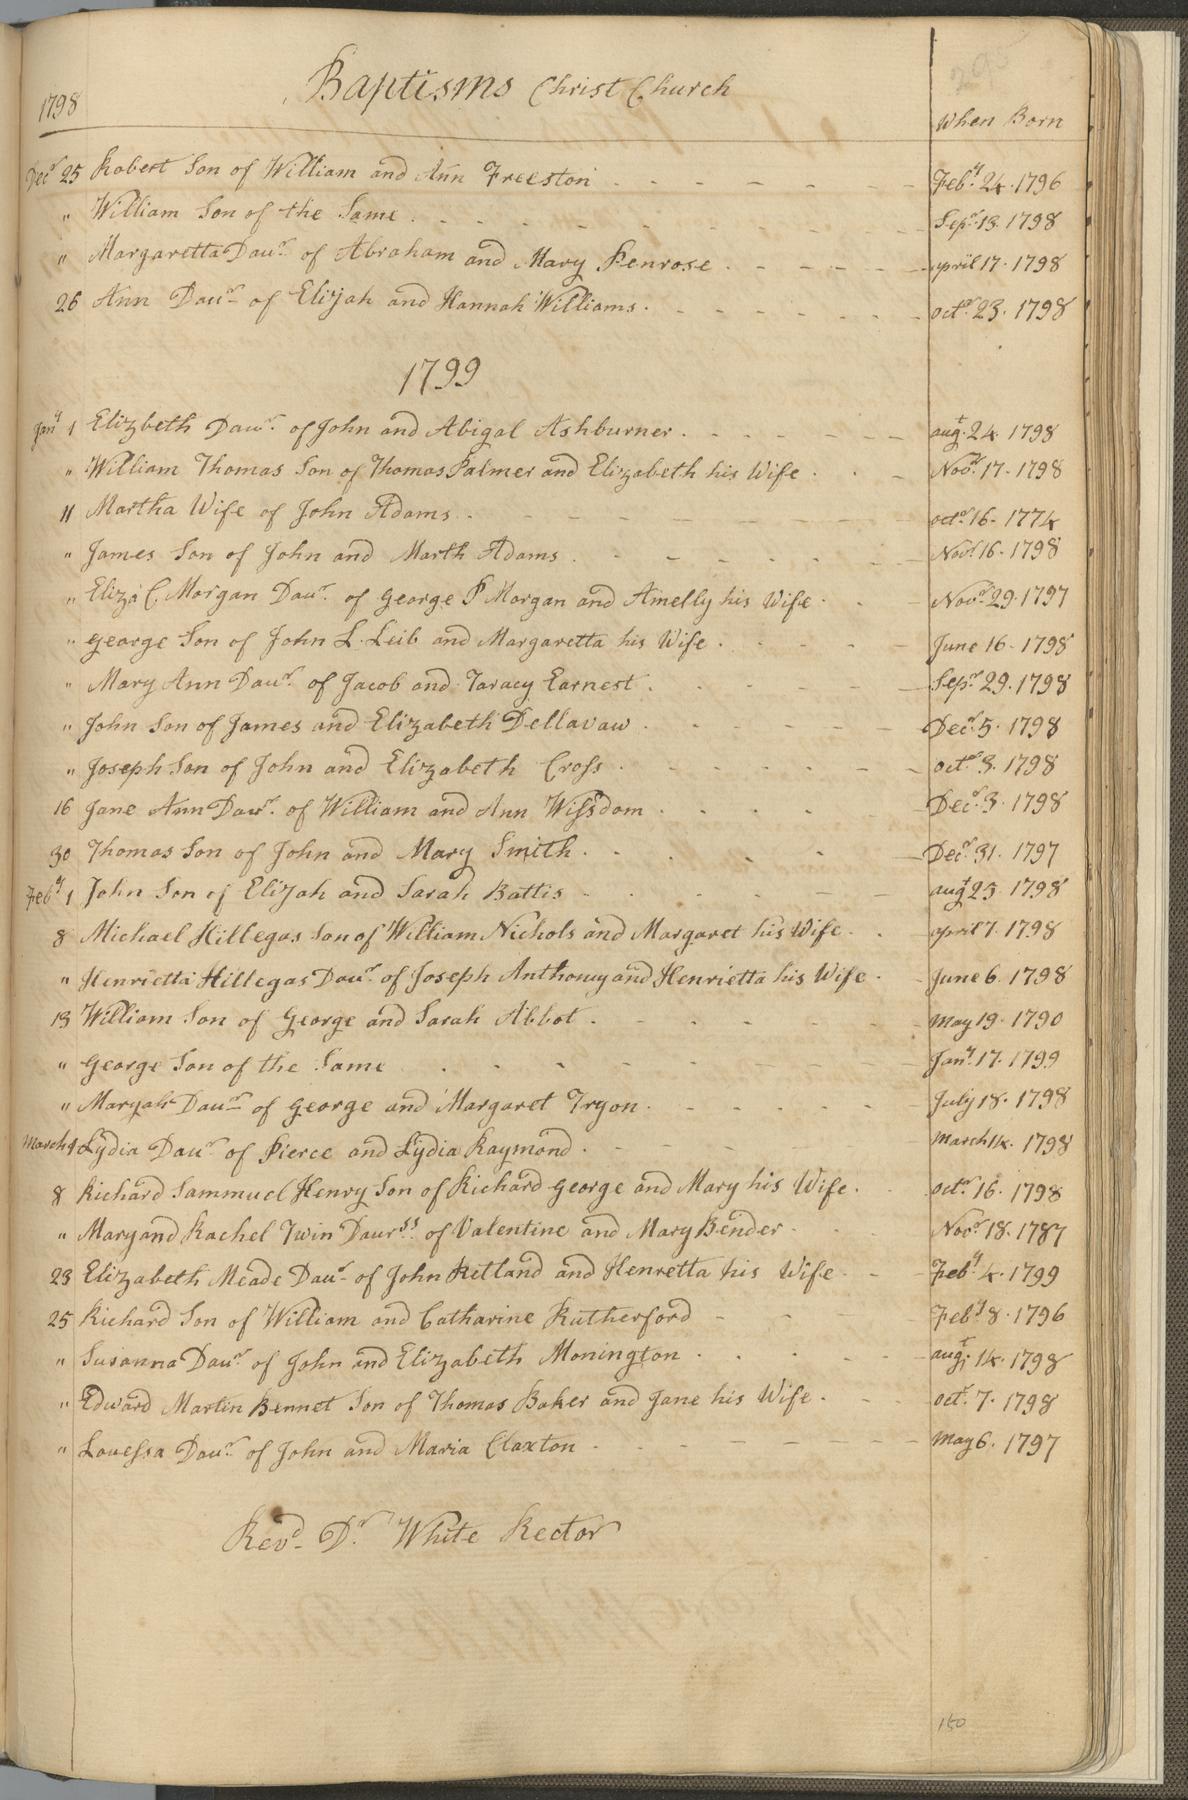 Baptisms Christ Church
1798
When Born
Decr 25 Robert Son of William and Ann Freeston Feby. 24. 1796
" William Son of the Same Sepr. 13. 1798
" Margaretta Daur. of Abraham and Mary Penrose april 17. 1798
26 Ann Daur. of Elijah and Hannah Williams octr. 23. 1798
1799
Jany 1 Elizbeth Daur. of John and Abigal Ashburner augt. 24. 1798
" William Thomas Son of Thomas Palmer and Elizabeth his Wife Novr. 17. 1798
11 Martha Wife of John Adams octr. 16. 1774
" James Son of John and Marth Adams Novr. 16. 1798
" Eliza C. Morgan Daur. of George P Morgan and Amelly his Wife Novr. 29. 1797
" George Son of John L. Leib and Margaretta his Wife June 16. 1798
" Mary Ann Daur. of Jacob and Taracy Earnest Sepr. 29. 1798
" John Son of James and Elizabeth Dellavaw Decr. 5. 1798
" Joseph Son of John and Elizabeth Cross octr. 3. 1798
16 Jane Ann Daur. of William and Ann Wissdom Decr. 3. 1798
30 Thomas Son of John and Mary Smith Decr. 31. 1797
Feby 1 John Son of Elijah and Sarah Battis augt 23. 1798
8 Michael Hillegas Son of William Nichols and Margaret his Wife april 7. 1798
" Henrietta Hillegas Daur. of Joseph Anthony and Henrietta his Wife June 6. 1798
13 William Son of George and Sarah Abbot May 19. 1790
" George Son of the Same Jany. 17. 1799
" Maryah Daur. of George and Margaret Tryon July 18. 1798
March 4 Lydia Daur. of Pierce and Lydia Raymond March 14. 1798
8 Richard Sammuel Henry Son of Richard George and Mary his Wife octr. 16. 1798
" Mary and Rachel Twin Daurss. of Valentine and Mary Bender Novr. 18. 1787
23 Elizabeth Meade Daur. of John Ketland and Henretta his Wife Feby. 4. 1799
25 Richard Son of William and Catharine Rutherford Feby. 8. 1796
" Susanna Daur. of John and Elizabeth Monington augt. 14. 1798
" Edward Martin Bennet Son of Thomas Baker and Jane his Wife octr. 7. 1798
" Louessa Daur. of John and Maria Claxton May 6. 1797
Revd. Dr. White Rector
150